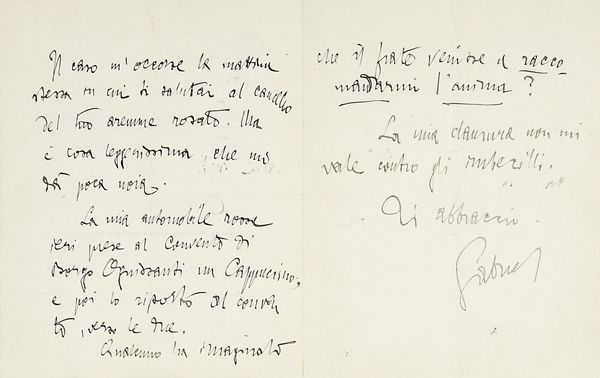 Il caso m'occorse la mattina
stessa in cui ti salutai al cancello
del tuo eremo rosato. Ma
è cosa leggerissima, che mi
dà poca noia.
La mia automobile rossa
ieri prese al Convento di
Borgo Ognissanti un Cappuccino;
e poi lo riportò al conven
to, verso le due.
Qualcuno ha imaginato
che il frate venisse a racco
mandarmi l'anima?
La mia clausura non mi
vale contro gli imbecilli.
Ti abbraccio.
Gabriel